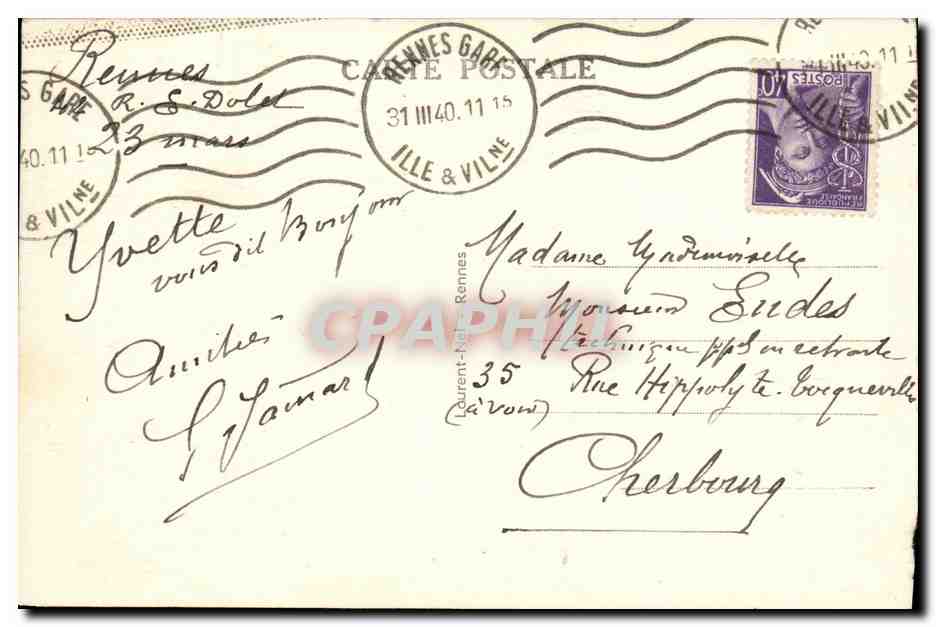 Rennes
R. E. Dolet
23 mars
CARTE POSTALE
RENNES GARE
31 III 40. 11 15
ILLE & VILNE
S GARE
40. 11 15
& VILNE
III 40. 11 1
ILLE & VILNE
40c
POSTES
REPUBLIQUE
FRANÇAISE
Yvette
vous dit Bonjour
Amitiés
Laurent-Nel, Rennes
CPAPHIL
Madame Mademoiselle
Monsieur Eudes
technique ppal en retraite
35 Rue Hippolyte-Tocqueville
(à voir)
Cherbourg